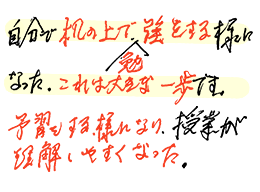 自分で机の上で勉強をする様に
なった。これは大きな一歩です。
予習もする様になり、授業が
理解しやすくなった。